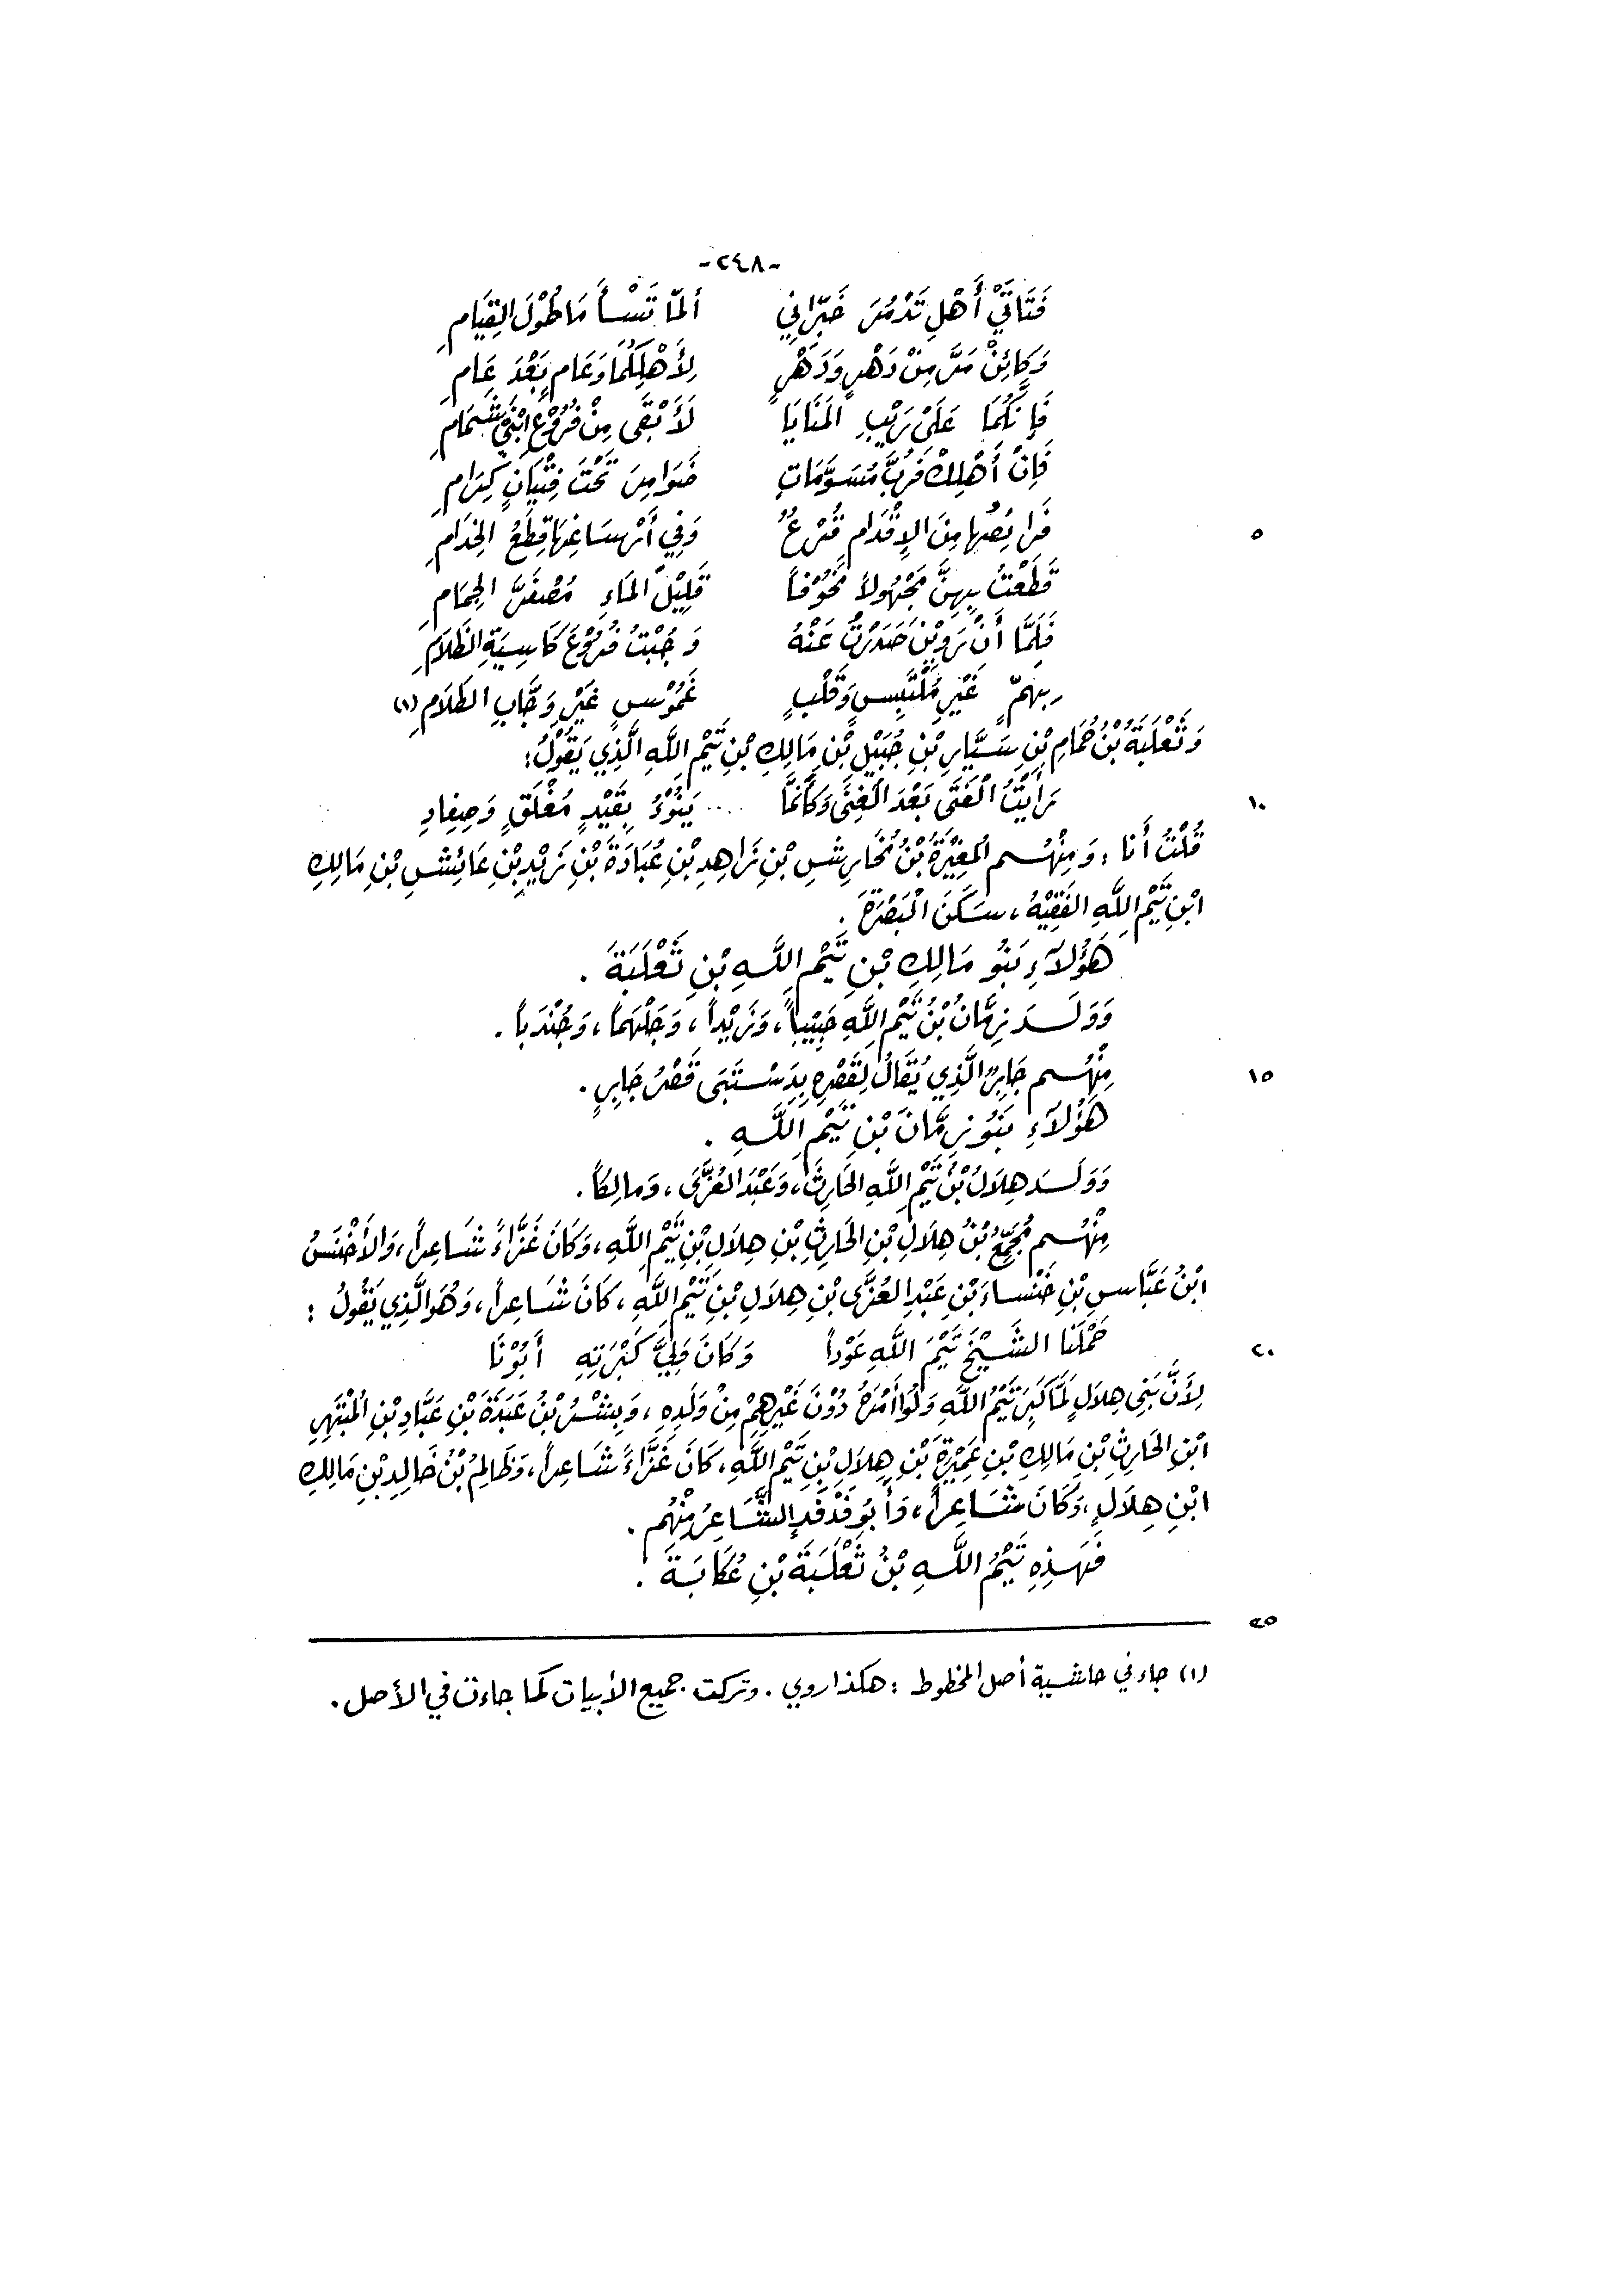 -٢٤٨-
فَتَاتَيْ أَهْلِ تَدْمُرَ خَبِّرَانِي أَلَمَّا تَسْأَمَا طُوْلَ القِيَامِ
وَكَائِنْ مَرَّ مِنْ دَهْرٍ وَدَهْرٍ لِأَهْلِكُمَا وَعَامٍ بَعْدَ عَامِ
فَإِنَّكُمَا عَلَى رَيْبِ المَنَايَا لَأَبْقَى مِنْ فُرُوْعِ ابْنَيْ شَمَامِ
فَإِنْ أَهْلِكْ فَرُبَّ مُسَوَّمَاتٍ ضَوَامِرَ تَحْتَ فِتْيَانٍ كِرَامِ
٥ فَرَائِصُهَا مِنَ الإِقْدَامِ قُرْعٌ وَفِي أَرْسَاغِهَا قِطَعُ الخِدَامِ
قَطَعْتُ بِهِنَّ مَجْهُولاً مَخُوْفاً قَلِيْلَ المَاءِ مُصْفَرَّ الجِمَامِ
فَلَمَّا أَنْ رَوِيْنَ صَدَرْتُ عَنْهُ وَجُبْتُ فُرُوْعَ كَاسِيَةِ الظَلَامِ
بِهَمٍّ غَيْرِ مُلْتَبِسٍ وَقَلْبٍ غَمُوْسٍ غَيْرِ وَجَّابِ الظَلَامِ (١)
وَثَعْلَبَةُ بْنُ حُمَامِ بْنِ سَيَّارِ بْنِ جُبَيْلِ بْنِ مَالِكِ بْنِ تَيْمِ اللَّهِ الَّذِي يَقُوْلُ:
١٠ رَأَيْتُ الْفَتَى بَعْدَ الْغِنَى وَكَأَنَّمَا يَنُوْءُ بِقَيْدٍ مُغْلَقٍ وَصِفِادِ
قُلْتُ أَنَا: وَمِنْهُم المُغِيْرَةُ بْنُ مُخَارِشِ بْنِ زَاهِدِ بْنِ عُبَادَةَ بْنِ زَيْدِ بْنِ عَائِشِ بْنِ مَالِكِ
ابْنِ تَيْمِ اللَّهِ الفَقِيْهُ، سَكَنَ الْبَصْرَةَ.
هَؤُلَاءِ بَنُو مَالِكِ بْنِ تَيْمِ اللَّهِ بْنِ ثَعْلَبَةَ.
وَوَلَدَ زِمَّانُ بْنُ تَيْمِ اللَّهِ حَبِيْباً، وَزَيْداً، وَجَلْهَماً، وَجُنْدَباً.
١٥ مِنْهُم جَابِرٌ الَّذِي يُقَالُ لِقَصْرِهِ بِدَسْتَبَى قَصْرُ جَابِرٍ.
هَؤُلَاءِ بَنُو زِمَّانَ بْنِ تَيْمِ اللَّهِ.
وَوَلَدَ هِلَالُ بْنُ تَيْمِ اللَّهِ الحَارِثَ، وَعَبْدَ العُزَّى، وَمَالِكاً.
مِنْهُم مُجَمِّعُ بْنُ هِلَالِ بْنِ الحَارِثِ بْنِ هِلَالِ بْنِ تَيْمِ اللَّهِ، وَكَانَ غَزَّاءً شَاعِراً، وَالأَخْنَسُ
ابْنُ عَبَّاسِ بْنِ خَنْسَاءَ بْنِ عَبْدِ العُزَّى بْنِ هِلَالِ بْنِ تَيْمِ اللَّهِ، كَانَ شَاعِراً، وَهُوَ الَّذِي يَقُولُ:
٢٠ حَمْلَنَا الشَّيْخَ تَيْمَ اللَّهِ عَوْداً وَكَانَ وَلِيَّ كَبْرَتِهِ أَبُوْنَا
لِأَنَّ بَنِي هِلَالٍ لَمَّا كَبِرَ تَيْمُ اللَّهِ وَلُوا أَمْرَهُ دُوْنَ غَيْرِهِمْ مِنْ وَلَدِهِ، وَبِشْرُ بْنُ عَبَدَةَ بْنِ عَبَّادِ بْنِ المُبْتَهِرِ
ابْنِ الحَارِثِ بْنِ مَالِكِ بْنِ عَمِيْرَةَ بْنِ هِلَالِ بْنِ تَيْمِ اللَّهِ، كَانَ غَزَّاءً شَاعِراً، وَظَالِمُ بْنُ خَالِدِ بْنِ مَالِكِ
ابْنِ هِلَالٍ، وَكَانَ شَاعِراً، وَأَبُو فَدْفَدٍ الشَّاعِرُ مِنْهُم.
فَهَذِهِ تَيْمُ اللَّهِ بْنُ ثَعْلَبَةَ بْنِ عُكَابَةَ.
٢٥
(١) جاء في حاشية أصل المخطوط: هكذا روي. وتركت جميع الأبيات كما جاءت في الأصل.